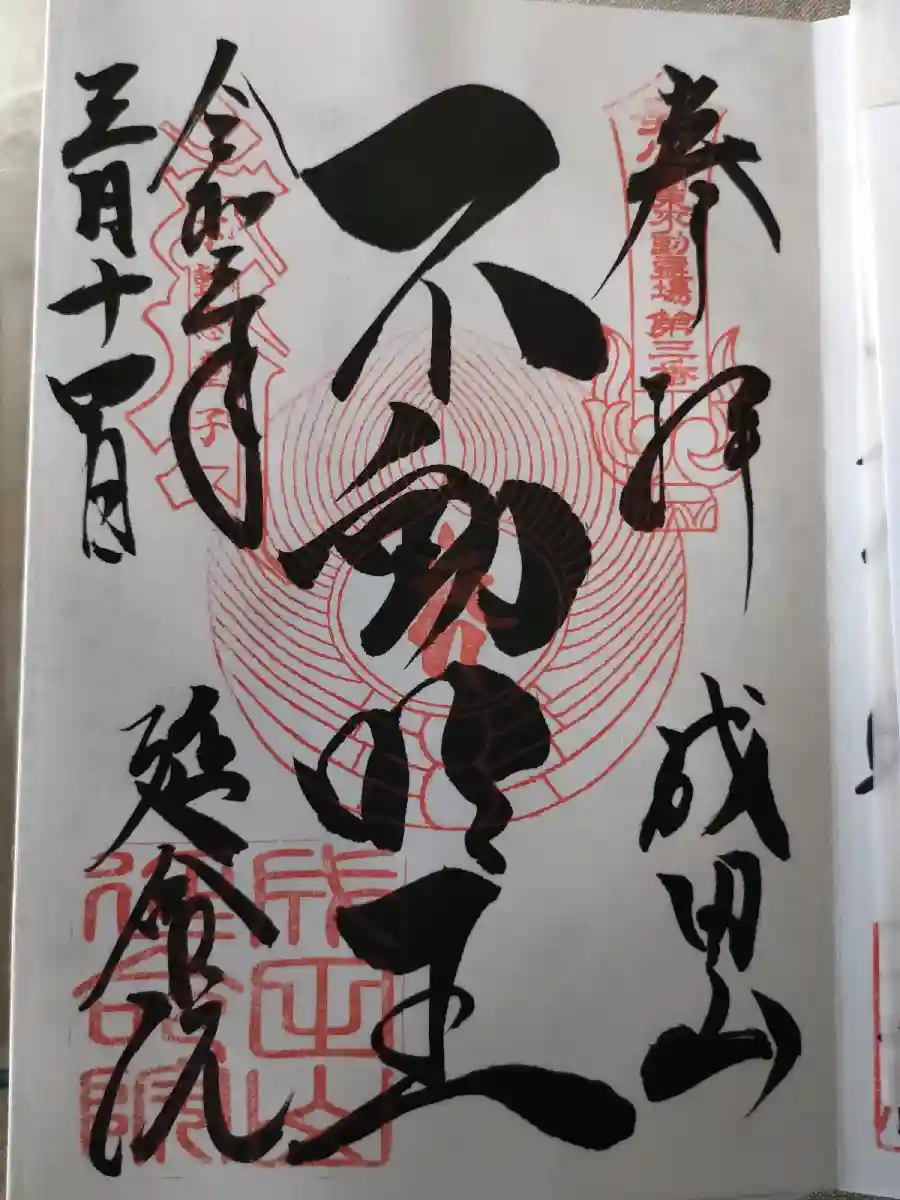 奉拝
成田山
東不動霊場第三番
不動明王
令和三年
三月十四日
童子
延命院
成田山
延命院